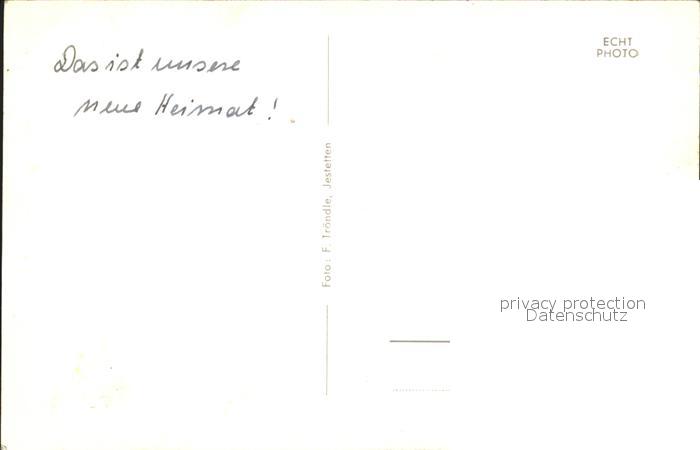 Das ist unsere
neue Heimat!
ECHT
PHOTO
Foto: F. Tröndle, Jestetten
privacy protection
Datenschutz